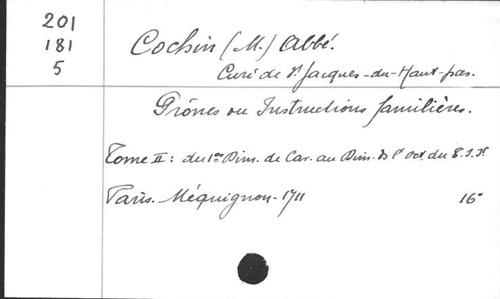 201
181
5
Cochin (M.) Abbé.
Curé de St Jacques-du-Haut-pas.
Prônes ou Instructions familières.
Tome II: du 1er Dim. de Car. au Dim. ds l'Oct. du
Paris. Méquignon-1711
16°